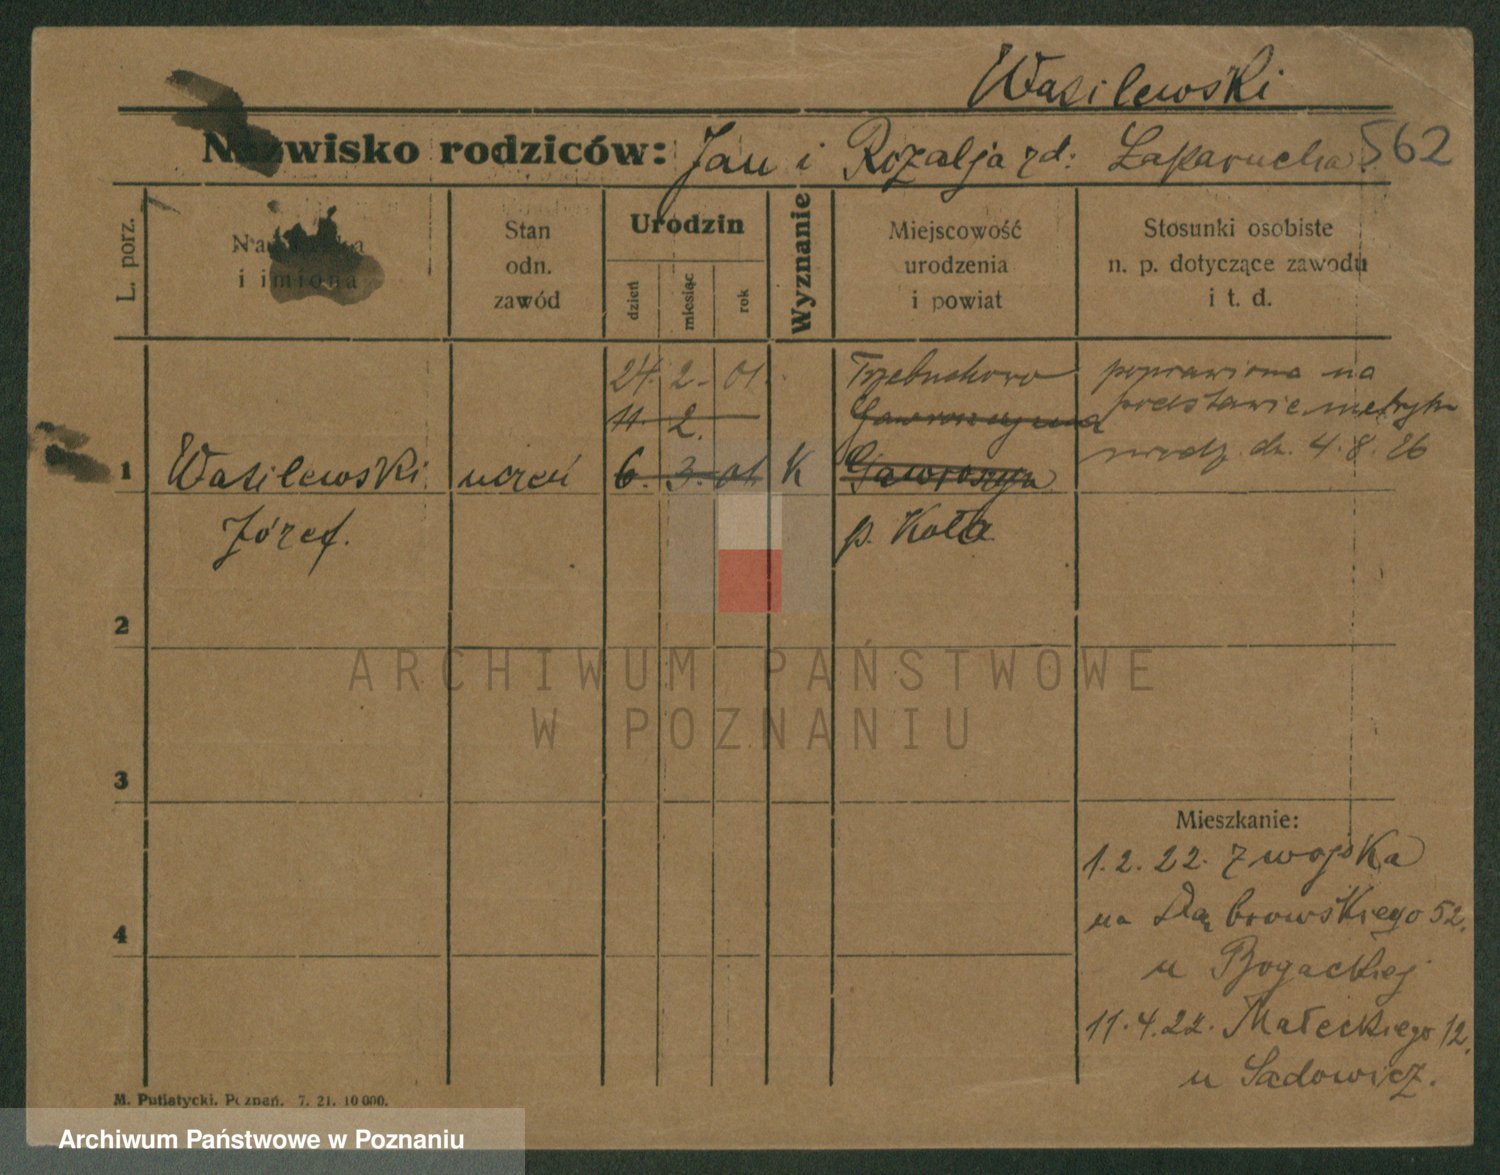 Wasilewski
Nazwisko rodziców: Jan i Rozalja zd: 562
L. porz.
Nazwiska i imiona
Stan odn. zawód
Urodzin
dzień
miesiąc
rok
Wyznanie
Miejscowość urodzenia i powiat
Stosunki osobiste n. p. dotyczące zawodu i t. d.
24. 2. 01. Trzebuchowo poprawiona na
11. 2. podstawie metryki
1 Wasilewski uczeń 6. 3. 01. K Gawroszyn urodz. dn. 4.8.26
Józef. p. Koło
2
3
4
Mieszkanie:
1.2.22. z wojska
na Dąbrowskiego 52.
u Bogackiej
11.4.22. Małeckiego 12.
u Sadowicz.
M. Putiatycki. Poznań. 7. 21. 10 000.
ARCHIWUM PAŃSTWOWE
W POZNANIU
Archiwum Państwowe w Poznaniu